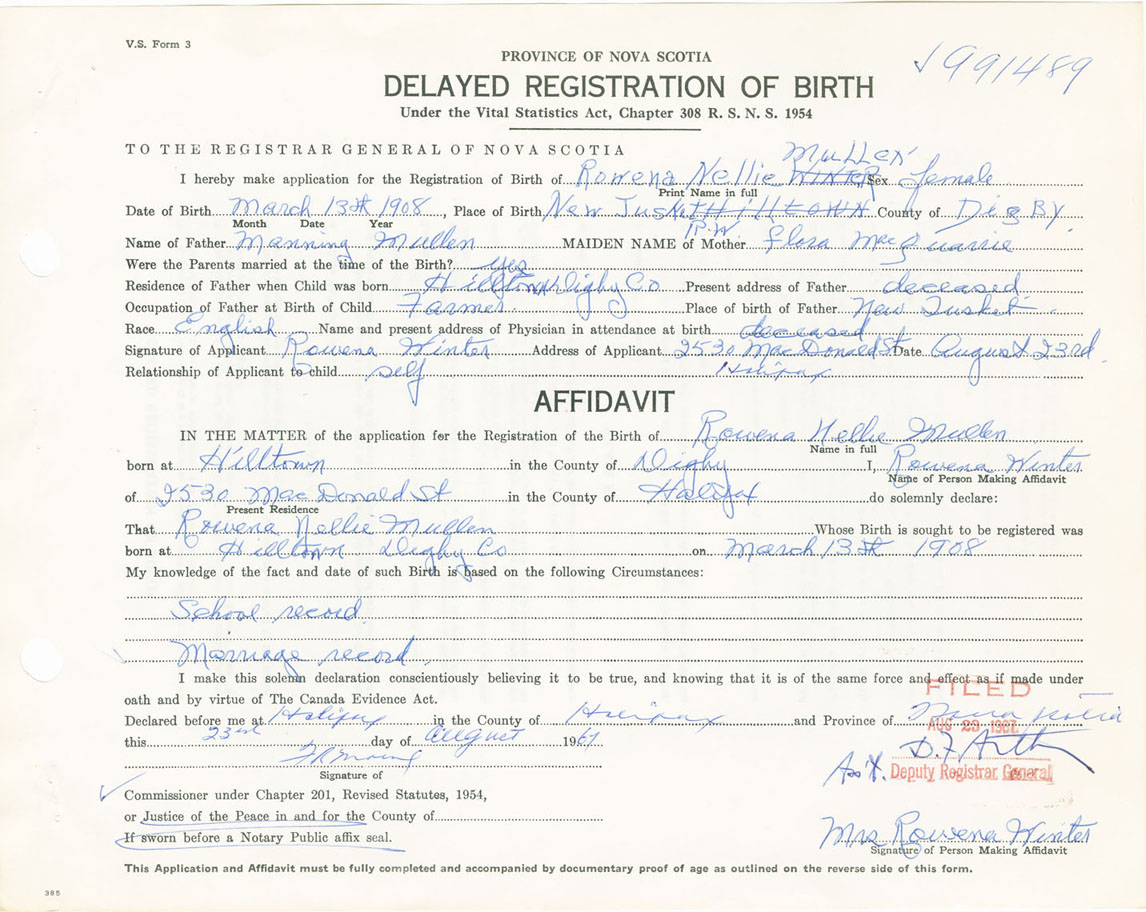 V.S. Form 3
991489
PROVINCE OF NOVA SCOTIA
DELAYED REGISTRATION OF BIRTH
Under the Vital Statistics Act, Chapter 308 R. S. N. S. 1954
TO THE REGISTRAR GENERAL OF NOVA SCOTIA
MULLEN
I hereby make application for the Registration of Birth of Rowena Nellie WINTER Sex female
Print Name in full
Date of Birth March 13th 1908, Place of Birth New Tusket Hilltown County of Digby.
Month Date Year R.W.
Name of Father Manning Mullen MAIDEN NAME of Mother Flora MacQuarrie
Were the Parents married at the time of the Birth? yes
Residence of Father when Child was born Hilltown Digby Co Present address of Father deceased.
Occupation of Father at Birth of Child Farmer Place of birth of Father New Tusket.
Race English Name and present address of Physician in attendance at birth deceased
Signature of Applicant Rowena Winter Address of Applicant 2530 MacDonald St Date August 23rd.
Relationship of Applicant to child self Halifax
AFFIDAVIT
IN THE MATTER of the application for the Registration of the Birth of Rowena Nellie Mullen
Name in full
born at Hilltown in the County of Digby I, Rowena Winter
Name of Person Making Affidavit
of 2530 MacDonald St in the County of Halifax do solemnly declare:
Present Residence
That Rowena Nellie Mullen Whose Birth is sought to be registered was
born at Hilltown Digby Co on March 13th 1908
My knowledge of the fact and date of such Birth is based on the following Circumstances:
School record.
Marriage record.
I make this solemn declaration conscientiously believing it to be true, and knowing that it is of the same force and effect as if made under
oath and by virtue of The Canada Evidence Act.
FILED
Declared before me at Halifax in the County of Halifax and Province of Nova Scotia
AUG 29 1967
this 23rd day of August 1967
Signature of
Ass't. Deputy Registrar General
Commissioner under Chapter 201, Revised Statutes, 1954,
or Justice of the Peace in and for the County of
If sworn before a Notary Public affix seal.
Mrs Rowena Winter
Signature of Person Making Affidavit
This Application and Affidavit must be fully completed and accompanied by documentary proof of age as outlined on the reverse side of this form.
385